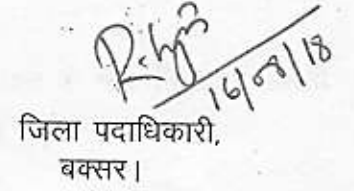 16/08/18
जिला पदाधिकारी,
बक्सर।